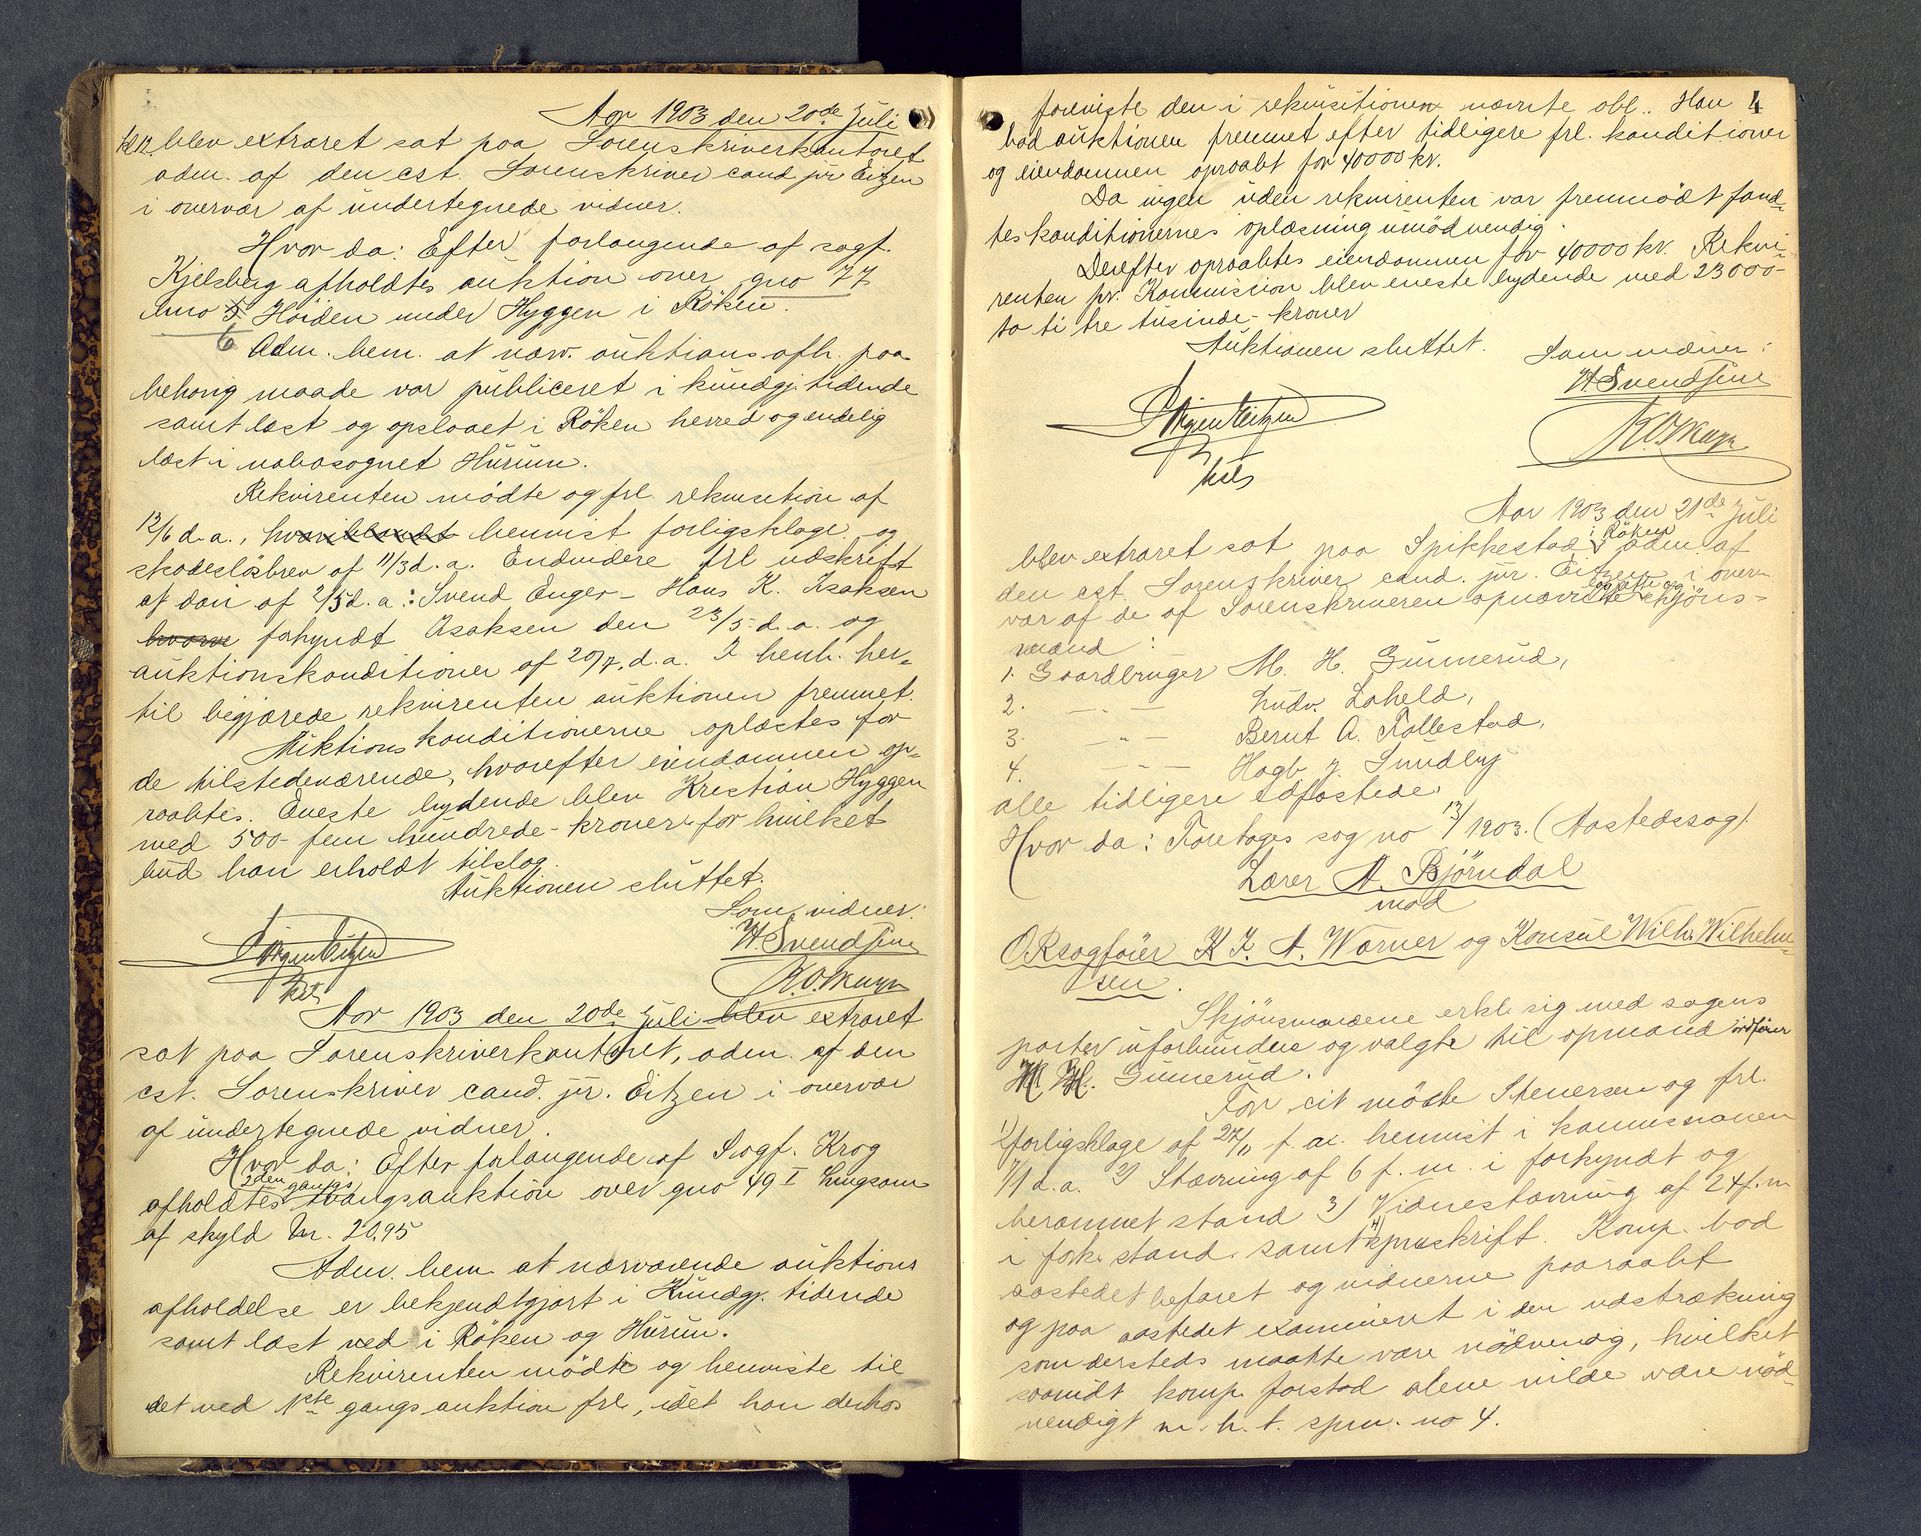 Aar 1903 den 20de Juli
kl 12. blev extraret sat paa Sorenskriverkontoret
adm. af den cst. Sorenskriver cand jur Eitzen
i overvær af undertegnede vidner.
Hvor da: Efter forlangende af sagf.
Kjelsberg afholdtes auktion over gno 77
bno 6 Höiden under Hyggen i Röken.
Adm. bem. at nærv. auktions afh. paa
behörig maade var publiceret i kundgj. tidende
samt læst og opslaaet i Röken herred og endelig
læst i nabosognet Hurum.
Rekvirenten mödte og frl. rekvisition af
12/6 d.a., hvori blandt henvist forligsklage og
skadeslösbrev af 11/3 d.a. Endvidere frl udskrift
af dom af 2/5 d.a: Svend Enger - Hans K. Isaksen
hvorve forkyndt Isaksen den 23/5 d.a. og
auktionskonditioner af 20/7 d.a. I henh. her-
til begjærede rekvirenten auktionen fremmet.
Auktionskonditionerne oplæstes for
de tilstedeværende, hvorefter eiendommen op-
raabtes. Eneste bydende blev Kristian Hyggen
med 500 - fem hundrede - kroner for hvilket
bud han erholdt tilslag.
Auktionen sluttet.
Som vidner:
Jörgen Eitzen
cst
H Svendsen
Aar 1903 den 20de Juli blev extraret
sat paa Sorenskriverkontoret, adm. af den
cst. Sorenskriver cand. jur. Eitzen i overvær
af undertegnede vidner.
Hvor da: Efter forlangende af Sagf. Krog
2den gangs
afholdtes tvangsauktion over gno 49 I Lingsom
af skyld m. 20,95
Adm. bem at nærværende auktions
afholdelse er bekjendtgjort i Kundgj. tidende
samt læst ved i Röken og Hurum.
Rekvirenten mödte og henviste til
det ved 1ste gangs auktion frl, idet han derhos
4
foreviste den i rekvisitionen nævnte obl.. Han
bad auktionen fremmet efter tidligere frl. konditioner
og eiendommen opraabt for 40000 kr.
Da ingen uden rekvirenten var fremmödt fand-
tes konditionernes oplæsning unödvendig.
Derefter opraabtes eiendommen for 40000 kr. Rekvi-
renten pr. Kommission blev eneste bydende med 23000 -
to ti tre tusinde - kroner
Auktionen sluttet.
Som vidner:
Jörgen Eitzen
cst
H Svendsen
Aar 1903 den 21de Juli
i Röken
blev extraret sat paa Spikkestad adm. af
den cst. Sorenskriver cand. jur. Eitzen i over-
vær af de af Sorenskriveren opnævnte skjöns-
mænd:
1. Gaardbruger M. H. Gunnerud,
2. — " — Ludv. Laheld,
3. — " — Bernt A. Follestad,
4. — " — Hagb. J. Sundby
alle tidligere edfæstede.
Hvor da: Foretages sag no 13/1903. (Aastedssag).
Lærer A. Björndal
mod
ORsagförer K. I. A. Warner og Konsul Wilh. Wilhelm-
sen.
Skjönsmændene erkl. sig med sagens
parter uforbundne og valgte til opmand ordförer
M. H. Gunnerud.
For cit mödte Stenersen og frl.
1) forligsklage af 27/11 f. a. henvist i kommissionen
7/1 d.a. 2) Stævning af 6 f. m. i forkyndt og
berammet stand 3) Vidnestævning af 24 f. m
i fork. stand. samt 4) spmskrift. Komp. bad
aastedet befaret og vidnerne paaraabt
og paa aastedet examineret i den udstrækning
som dersteds maatte være nödvendig, hvilket
saavidt komp. forstod alene vilde være nöd-
vendigt m. h. t. spm. no 4.